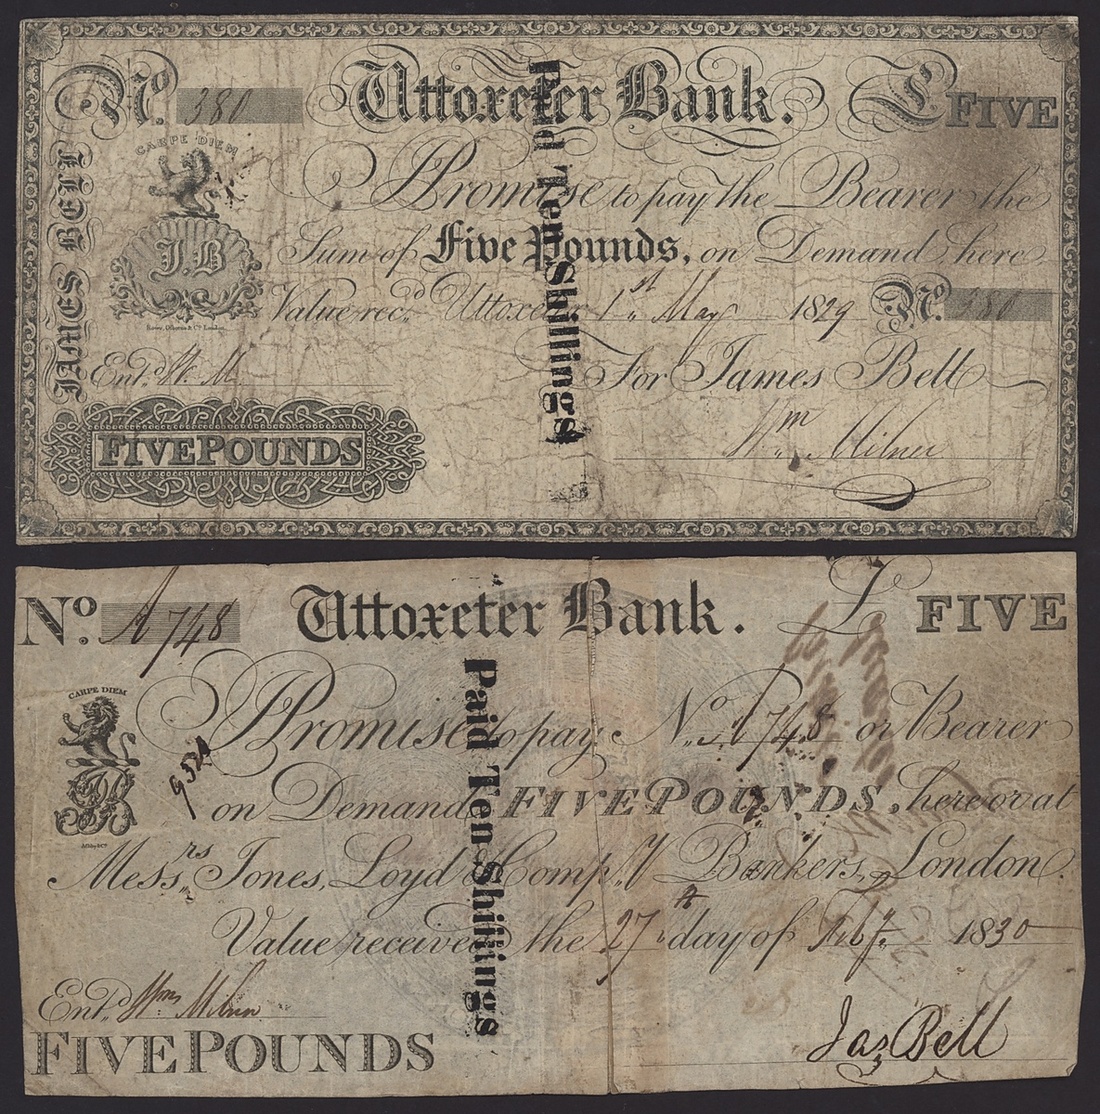 No. 380 Uttoxeter Bank. £ FIVE
CARPE DIEM
JAMES BELL
J.B
I Promise to pay the Bearer the
Sum of Five Pounds, on Demand, here
Value rec.d Uttoxeter 1st May 1829 No. 380
Entd. W. M.
For James Bell
Wm. Milner
FIVE POUNDS
Paid Ten Shillings
No. A748 Uttoxeter Bank. £ FIVE
CARPE DIEM
I Promise to pay No. A748 or Bearer
on Demand FIVE POUNDS, here or at
Messrs. Jones, Loyd & Comp.y Bankers, London.
Value received the 27th day of Feby. 1830
Entd. Wm. Milner
Jas Bell
FIVE POUNDS
Paid Ten Shillings